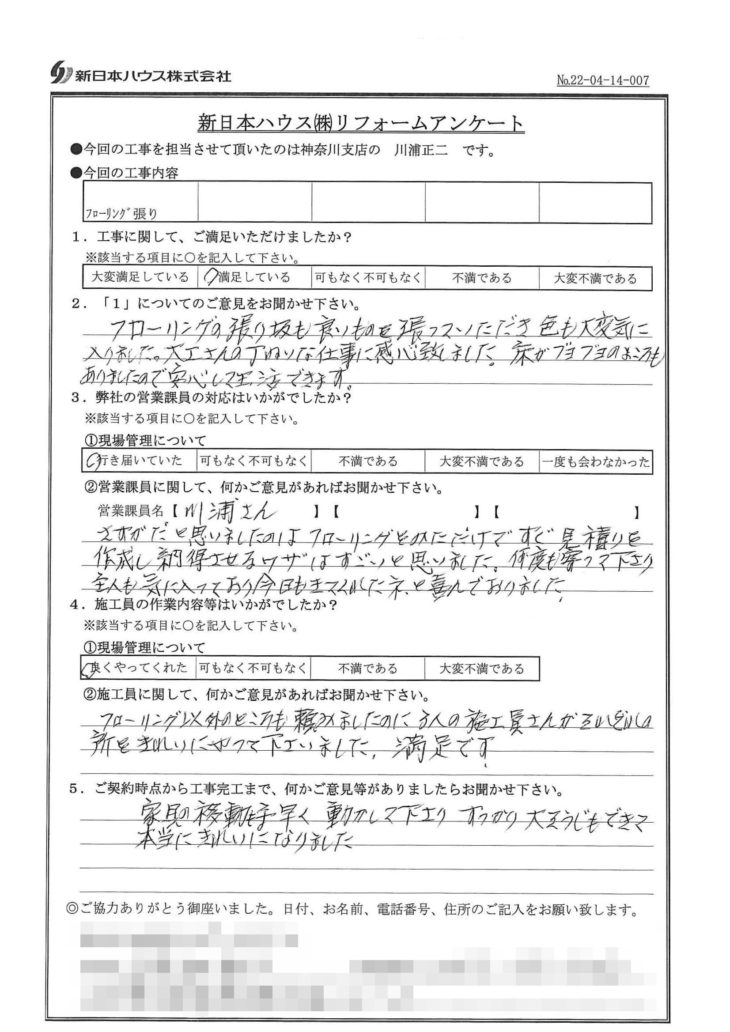 新日本ハウス株式会社
№22-04-14-007
新日本ハウス㈱リフォームアンケート
●今回の工事を担当させて頂いたのは神奈川支店の 川浦正二 です。
●今回の工事内容
フローリング張り
1．工事に関して、ご満足いただけましたか？
※該当する項目に○を記入して下さい。
大変満足している 満足している 可もなく不可もなく 不満である 大変不満である
2．「1」についてのご意見をお聞かせ下さい。
フローリングの張り板も良いものを張っていただき 色も大変気に
入りました。大工さんの丁ねいな仕事に感心致しました。床がブヨブヨのところも
ありましたので安心して生活できます。
3．弊社の営業課員の対応はいかがでしたか？
※該当する項目に○を記入して下さい。
①現場管理について
行き届いていた 可もなく不可もなく 不満である 大変不満である 一度も会わなかった
②営業課員に関して、何かご意見があればお聞かせ下さい。
営業課員名【 川浦さん 】【 】【 】
さすがだと思いましたのは フローリングをみただけで すぐ見積りを
作成し 納得させるワザはすごいと思いました。何度も寄って下さり
主人も気に入っており今日も来てくれたネ、と喜んでおりました。
4．施工員の作業内容等はいかがでしたか？
※該当する項目に○を記入して下さい。
①現場管理について
良くやってくれた 可もなく不可もなく 不満である 大変不満である
②施工員に関して、何かご意見があればお聞かせ下さい。
フローリング以外のところも 頼みましたのに 3人の施工員さんが それぞれの
所をきれいにやって下さいました。満足です
5．ご契約時点から工事完工まで、何かご意見等がありましたらお聞かせ下さい。
家具の移動も手早く 動かして下さり すっかり 大そうじもできて
本当にきれいになりました
◎ご協力ありがとう御座いました。日付、お名前、電話番号、住所のご記入をお願い致します。